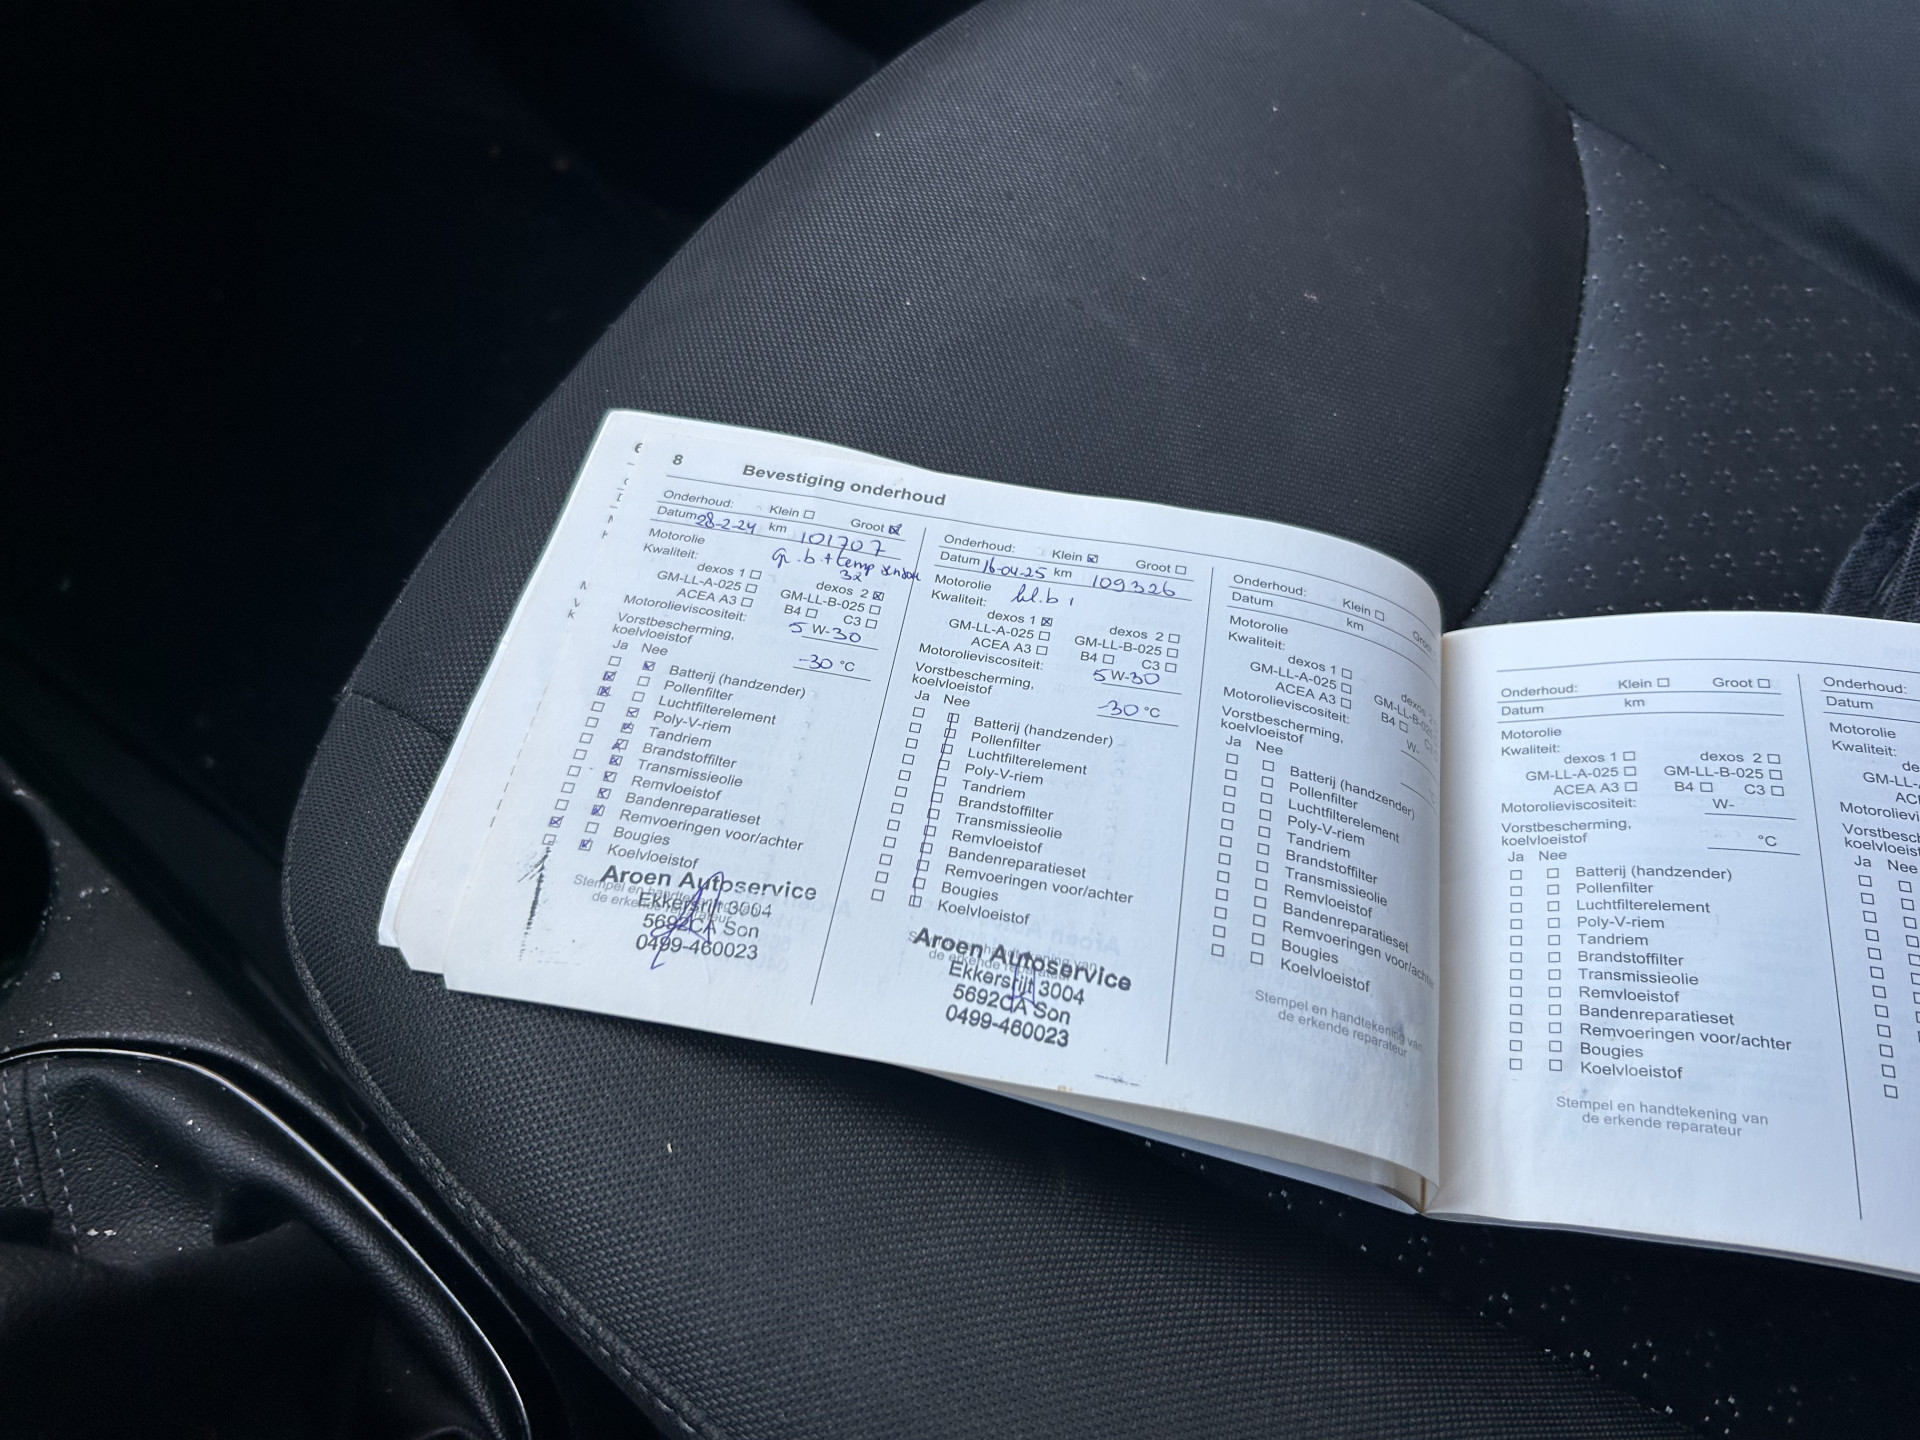 8 Bevestiging onderhoud
Onderhoud: Klein Groot
Datum 28-2-24 km 101707
Motorolie gr. b. + temp
Kwaliteit: 3x
dexos 1 dexos 2
GM-LL-A-025 GM-LL-B-025
ACEA A3 B4 C3
Motorolieviscositeit: 5 W-30
Vorstbescherming,
koelvloeistof -30 °C
Ja Nee
Batterij (handzender)
Pollenfilter
Luchtfilterelement
Poly-V-riem
Tandriem
Brandstoffilter
Transmissieolie
Remvloeistof
Bandenreparatieset
Remvoeringen voor/achter
Bougies
Koelvloeistof
Stempel en handtekening van
de erkende reparateur
Aroen Autoservice
Ekkersrijt 3004
5692CA Son
0499-460023
Onderhoud: Klein Groot
Datum 16-04-25 km 109326
Motorolie kl. b
Kwaliteit:
dexos 1 dexos 2
GM-LL-A-025 GM-LL-B-025
ACEA A3 B4 C3
Motorolieviscositeit: 5 W-30
Vorstbescherming,
koelvloeistof -30 °C
Ja Nee
Batterij (handzender)
Pollenfilter
Luchtfilterelement
Poly-V-riem
Tandriem
Brandstoffilter
Transmissieolie
Remvloeistof
Bandenreparatieset
Remvoeringen voor/achter
Bougies
Koelvloeistof
Stempel en handtekening van
de erkende reparateur
Aroen Autoservice
Ekkersrijt 3004
5692CA Son
0499-460023
Onderhoud: Klein Groot
Datum km
Motorolie
Kwaliteit:
dexos 1 dexos 2
GM-LL-A-025 GM-LL-B-025
ACEA A3 B4 C3
Motorolieviscositeit: W-
Vorstbescherming,
koelvloeistof
Ja Nee
Batterij (handzender)
Pollenfilter
Luchtfilterelement
Poly-V-riem
Tandriem
Brandstoffilter
Transmissieolie
Remvloeistof
Bandenreparatieset
Remvoeringen voor/achter
Bougies
Koelvloeistof
Stempel en handtekening van
de erkende reparateur
Onderhoud: Klein Groot
Datum km
Motorolie
Kwaliteit:
dexos 1 dexos 2
GM-LL-A-025 GM-LL-B-025
ACEA A3 B4 C3
Motorolieviscositeit: W-
Vorstbescherming,
koelvloeistof °C
Ja Nee
Batterij (handzender)
Pollenfilter
Luchtfilterelement
Poly-V-riem
Tandriem
Brandstoffilter
Transmissieolie
Remvloeistof
Bandenreparatieset
Remvoeringen voor/achter
Bougies
Koelvloeistof
Stempel en handtekening van
de erkende reparateur
Onderhoud:
Datum
Motorolie
Kwaliteit:
de
GM-LL-
AC
Motorolievi
Vorstbesch
koelvloeist
Ja Nee